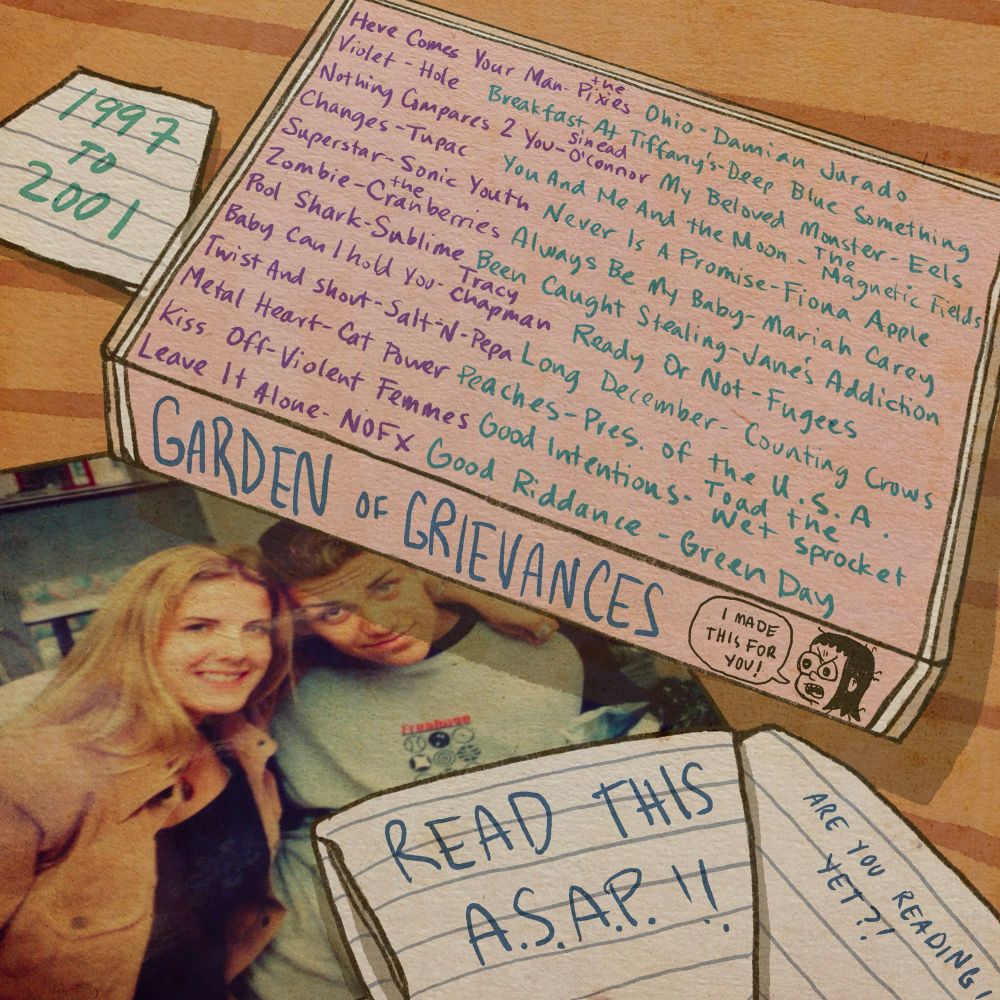 1997
TO
2001
Here Comes Your Man - the Pixies
Violet - Hole
Nothing Compares 2 You - sinead O'Connor
Changes - Tupac
Superstar - Sonic Youth
Zombie - the Cranberries
Pool Shark - Sublime
Baby Can I hold You - Tracy Chapman
Twist And Shout - Salt-N-Pepa
Metal Heart - Cat Power
Kiss Off - Violent Femmes
Leave It Alone - NOFX
Ohio - Damian Jurado
Breakfast At Tiffany's - Deep Blue Something
My Beloved Monster - Eels
You And Me And the Moon - The Magnetic Fields
Never Is A Promise - Fiona Apple
Always Be My Baby - Mariah Carey
Been Caught Stealing - Jane's Addiction
Ready Or Not - Fugees
Long December - Counting Crows
Peaches - Pres. of the U.S.A.
Good Intentions - Toad the Wet Sprocket
Good Riddance - Green Day
GARDEN OF GRIEVANCES
I MADE
THIS FOR
YOU!
freshuse
READ THIS
A.S.A.P. !!
ARE YOU READING
YET?!